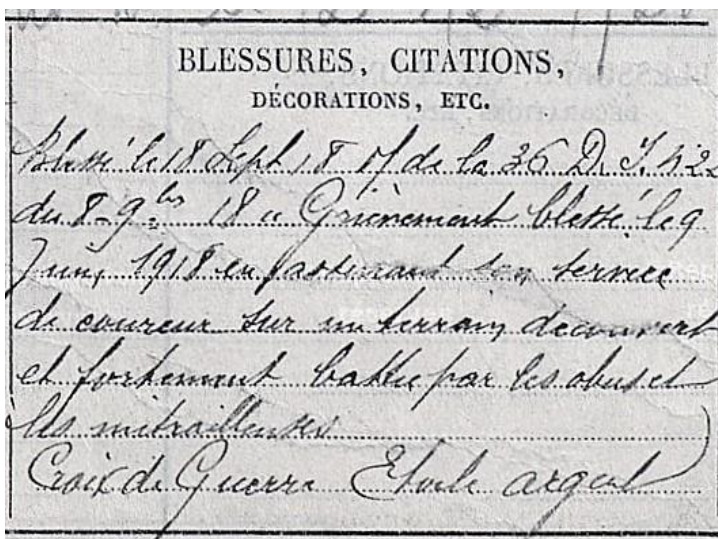 BLESSURES, CITATIONS,
DÉCORATIONS, ETC.
Blessé le 18 Sept 18 de la 36 D. I. 422
du 8-9bre 18 « Grièvement blessé le 9
Juin 1918 en assurant son service
de coureur sur un terrain découvert
et fortement battu par les obus et
les mitrailleuses
Croix de Guerre Etoile argent